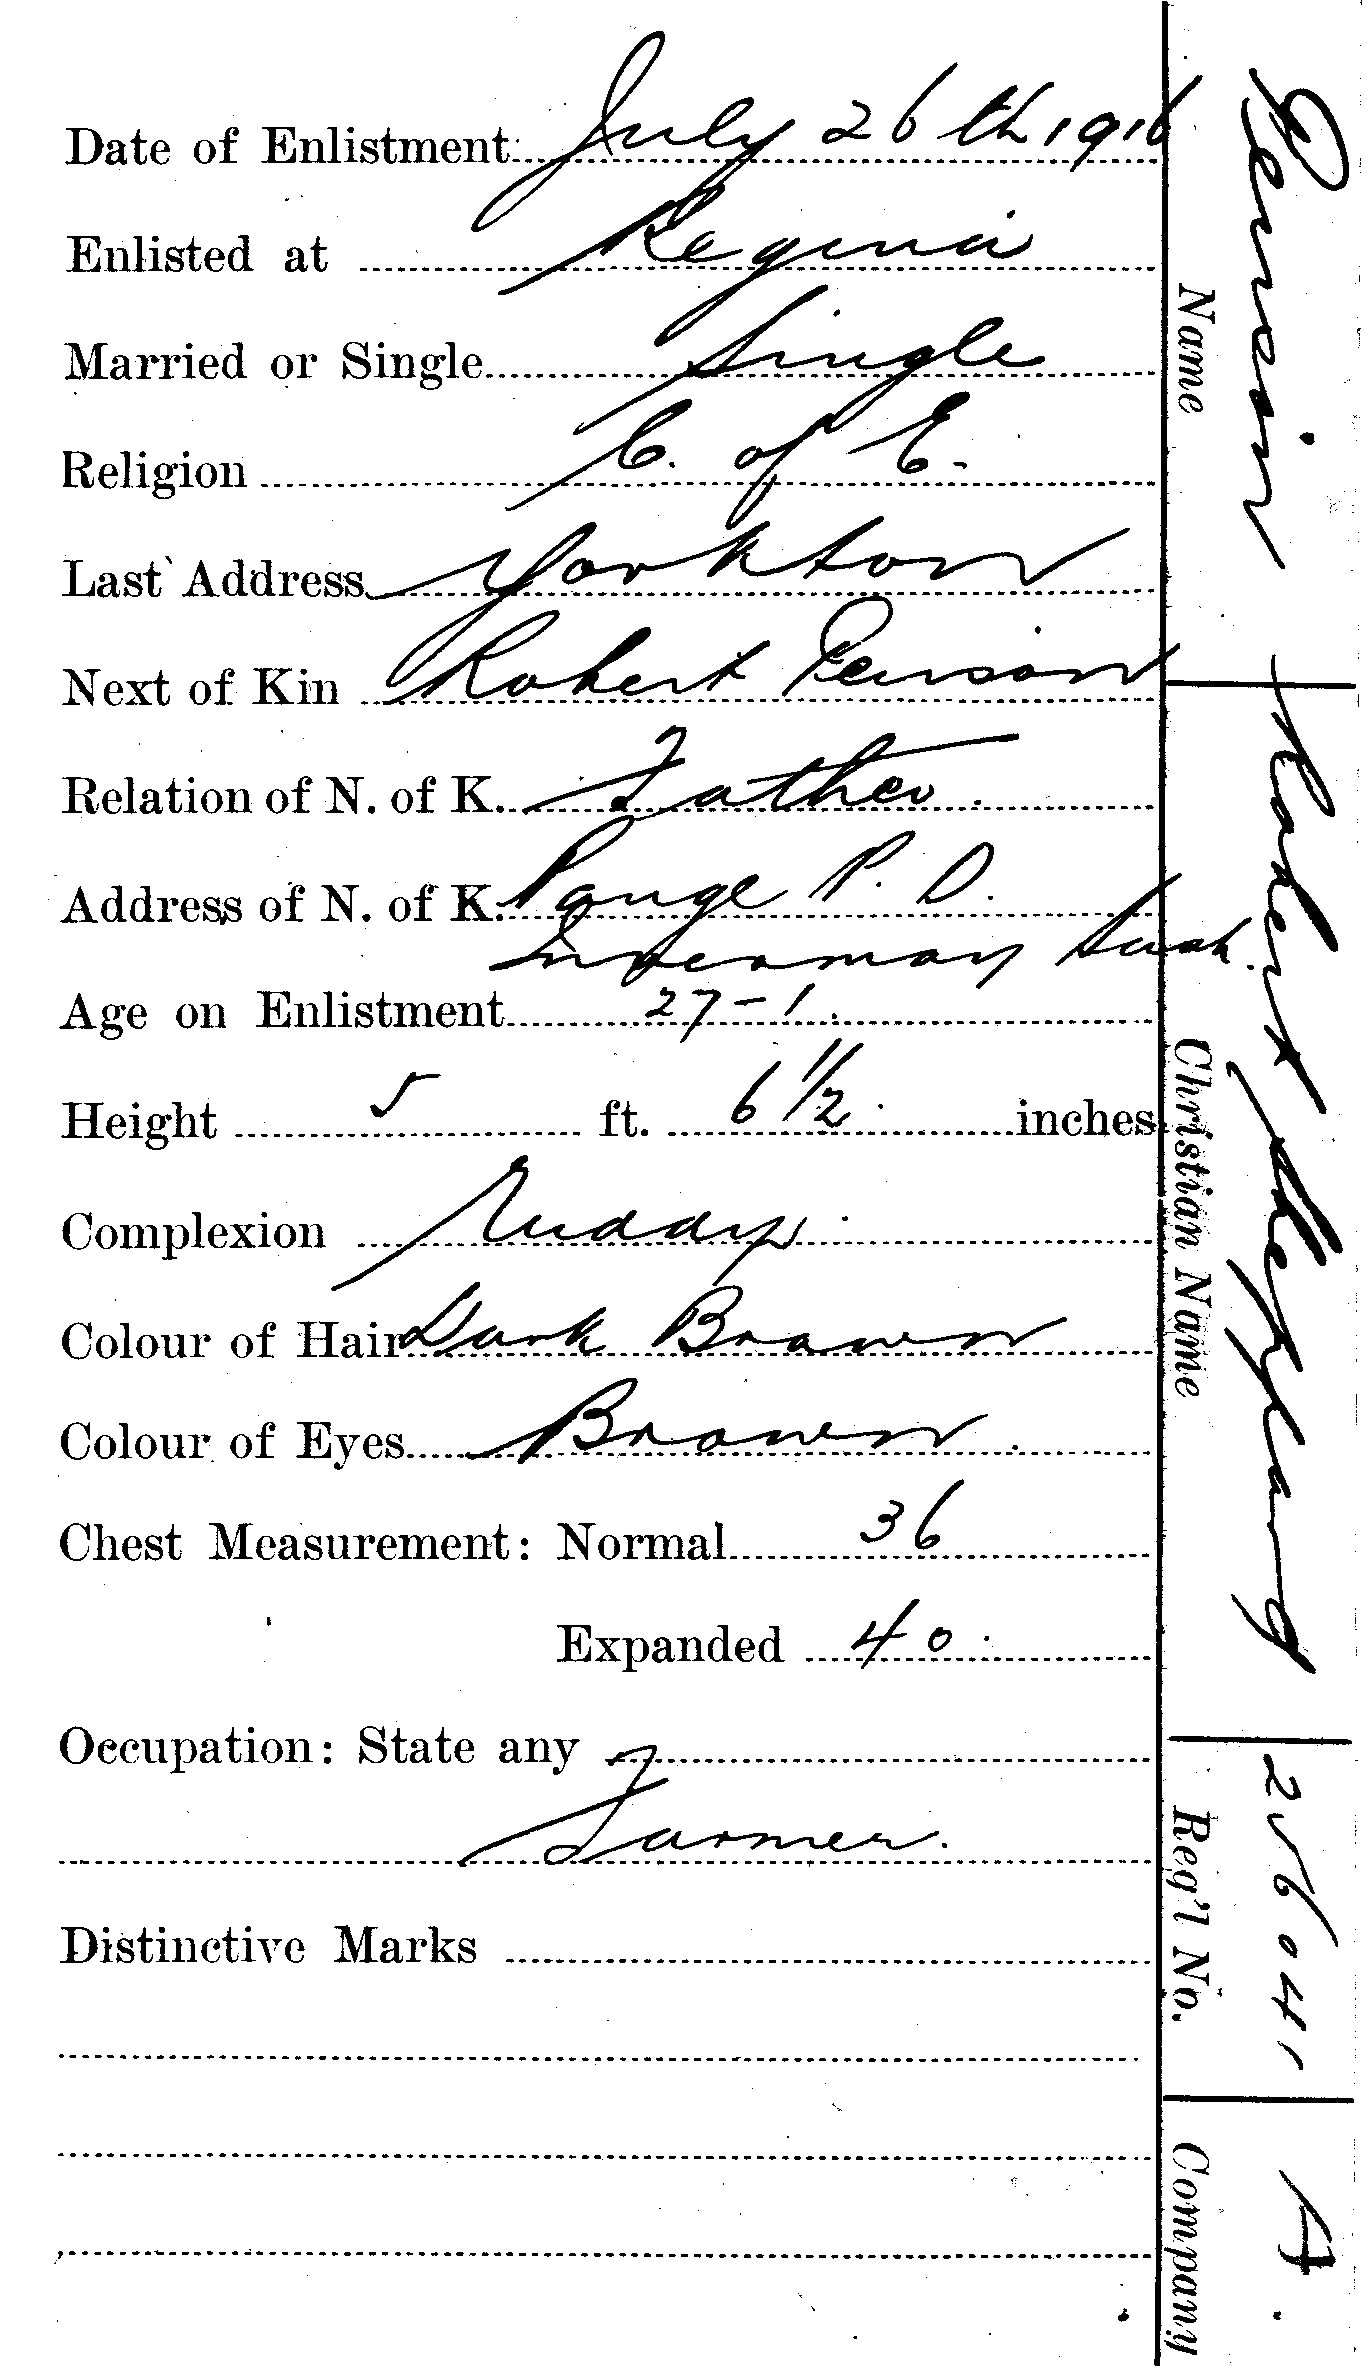 Date of Enlistment July 26th 1916
Enlisted at Regina
Married or Single Single
Religion C. of E.
Last Address Yorkton
Next of Kin Robert
Relation of N. of K. Father.
Address of N. of K.
Invermay Sask.
Age on Enlistment 27-1.
Height 5 ft. 6 1/2 inches
Complexion Ruddy.
Colour of Hair Dark Brown
Colour of Eyes Brown.
Chest Measurement: Normal 36
Expanded 40.
Occupation: State any
Farmer.
Distinctive Marks
Name
Christian Name Robert
Reg'l No. 256041
Company A.